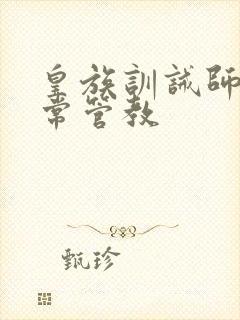 皇族訓誡師
常管教
甄珍